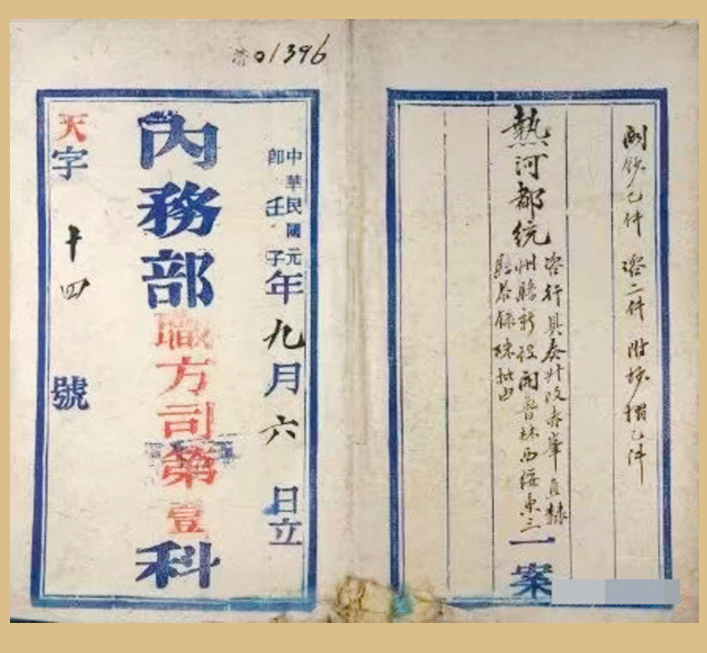 01396
閣鈔乙件 咨二件 附抄摺乙件
熱河都統
咨行具奏升改赤峯直隸
州新設開魯林西綏東三
縣恭錄硃批由
一案
中華民國元
即壬子
年九月六日立
內務部職方司第壹科
天字十四號